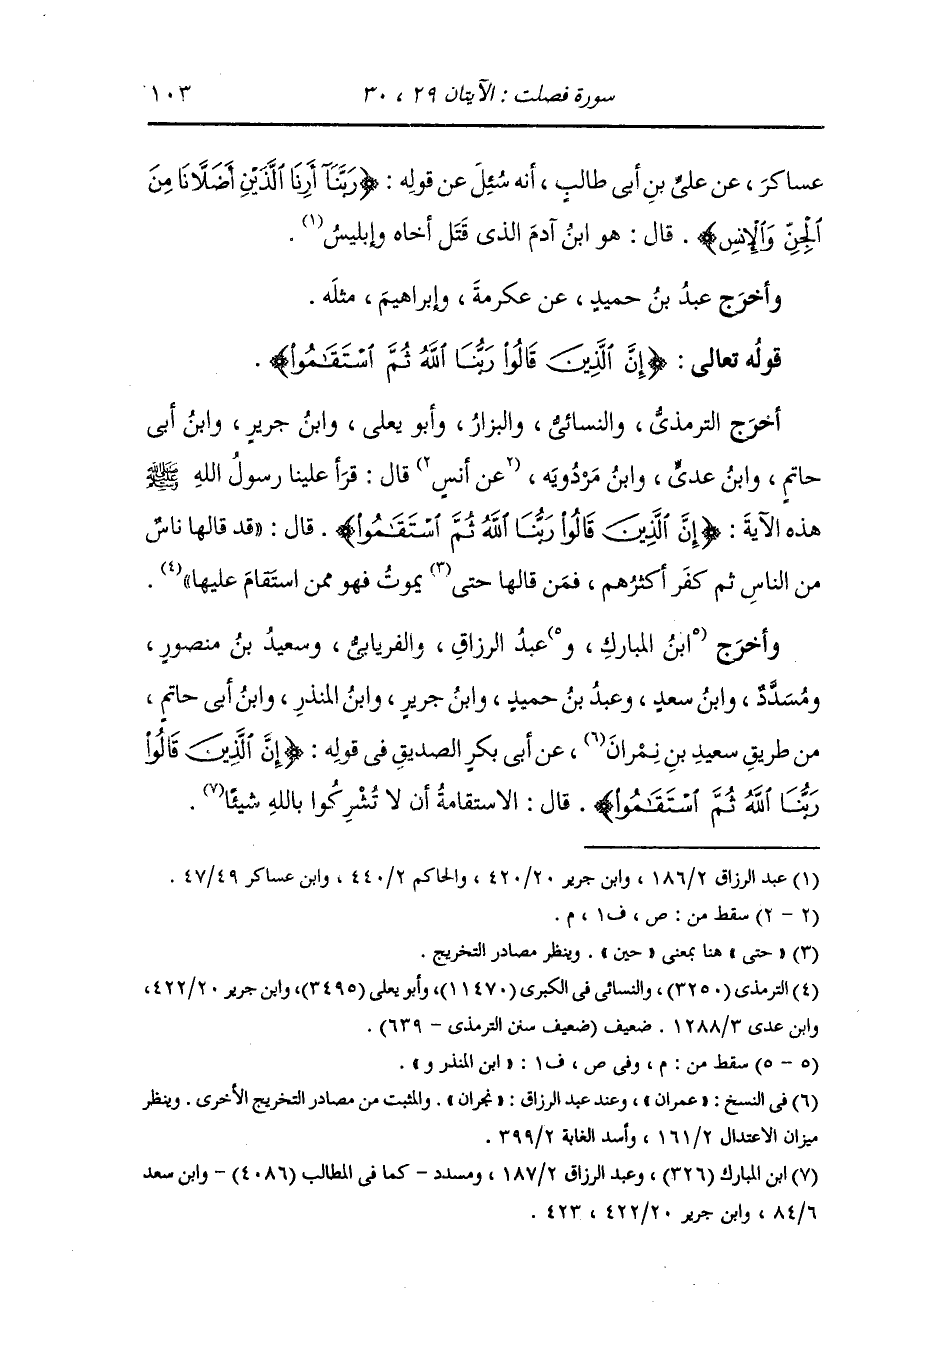 سورة فصلت : الآيتان ٢٩ ، ٣٠
١٠٣
عساكرَ ، عن علىِّ بنِ أبى طالبٍ ، أنه سُئِلَ عن قولِه : ﴿رَبَّنَآ أَرِنَا ٱلَّذَيْنِ أَضَلَّانَا مِنَ
ٱلْجِنِّ وَٱلْإِنسِ﴾ . قال : هو ابنُ آدمَ الذى قَتَل أخاه وإبليسُ(١) .
وأخرَج عبدُ بنُ حميدٍ ، عن عكرمةَ ، وإبراهيمَ ، مثلَه .
قولُه تعالى : ﴿إِنَّ ٱلَّذِينَ قَالُوا۟ رَبُّنَا ٱللَّهُ ثُمَّ ٱسْتَقَـٰمُوا۟﴾ .
أخرَج الترمذىُّ ، والنسائىُّ ، والبزارُ ، وأبو يعلى ، وابنُ جريرٍ ، وابنُ أبى
حاتمٍ ، وابنُ عدىٍّ ، وابنُ مَرْدُويَه ، (٢عن أنسٍ٢) قال : قرَأ علينا رسولُ اللهِ ﷺ
هذه الآيةَ : ﴿إِنَّ ٱلَّذِينَ قَالُوا۟ رَبُّنَا ٱللَّهُ ثُمَّ ٱسْتَقَـٰمُوا۟﴾ . قال : «قد قالها ناسٌ
من الناسِ ثم كفَر أكثرُهم ، فمَن قالها حتى(٣) يموتُ فهو ممن استَقامَ عليها»(٤) .
وأخرَج (٥ابنُ المباركِ ، و٥)عبدُ الرزاقِ ، والفريابىُّ ، وسعيدُ بنُ منصورٍ ،
ومُسَدَّدٌ ، وابنُ سعدٍ ، وعبدُ بنُ حميدٍ ، وابنُ جريرٍ ، وابنُ المنذرِ ، وابنُ أبى حاتمٍ ،
من طريقِ سعيدِ بنِ نِمْرانَ(٦) ، عن أبى بكرٍ الصديقِ فى قولِه : ﴿إِنَّ ٱلَّذِينَ قَالُوا۟
رَبُّنَا ٱللَّهُ ثُمَّ ٱسْتَقَـٰمُوا۟﴾ . قال : الاستقامةُ أن لا تُشْرِكُوا باللهِ شيئًا(٧) .
(١) عبد الرزاق ١٨٦/٢ ، وابن جرير ٤٢٠/٢٠ ، والحاكم ٤٤٠/٢ ، وابن عساكر ٤٧/٤٩ .
(٢ – ٢) سقط من : ص ، ف١ ، م .
(٣) « حتى » هنا بمعنى « حين » . وينظر مصادر التخريج .
(٤) الترمذى (٣٢٥٠) ، والنسائى فى الكبرى (١١٤٧٠)، وأبو يعلى (٣٤٩٥)، وابن جرير ٤٢٢/٢٠،
وابن عدى ١٢٨٨/٣ . ضعيف (ضعيف سنن الترمذى – ٦٣٩) .
(٥ – ٥) سقط من : م ، وفى ص ، ف١ : « ابن المنذر و » .
(٦) فى النسخ : « عمران » ، وعند عبد الرزاق : « نجران » . والمثبت من مصادر التخريج الأخرى . وينظر
ميزان الاعتدال ١٦١/٢ ، وأسد الغابة ٣٩٩/٢ .
(٧) ابن المبارك (٣٢٦) ، وعبد الرزاق ١٨٧/٢ ، ومسدد – كما فى المطالب (٤٠٨٦) – وابن سعد
٨٤/٦ ، وابن جرير ٤٢٢/٢٠ ، ٤٢٣ .